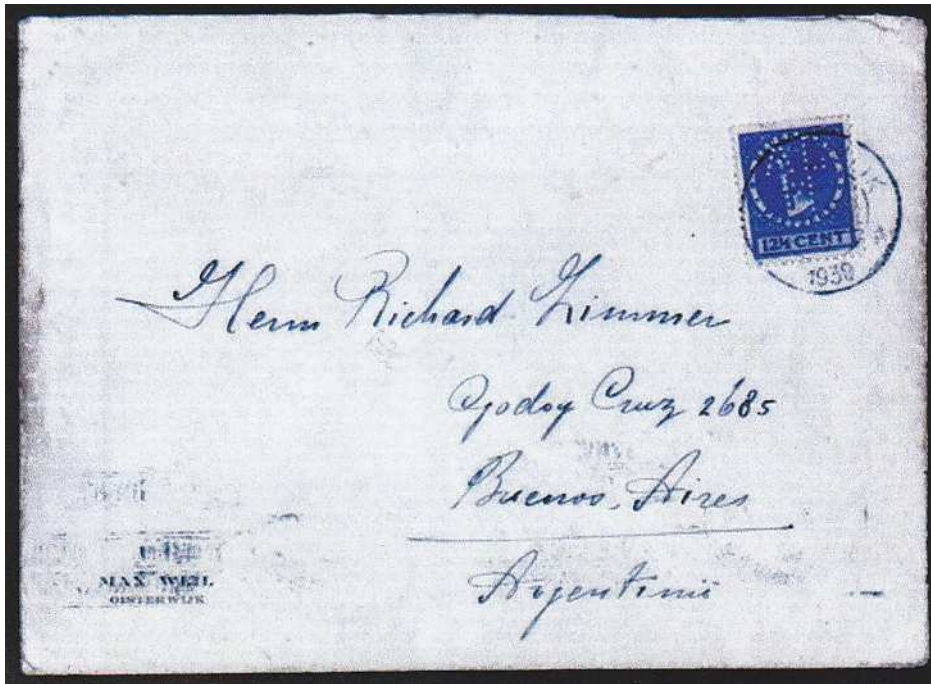 12½ CENT
IK
1939
Herrn Richard Zimmer
Godoy Cruz 2685
Buenos, Aires
Argentinië
MAX WEIL
OISTERWIJK